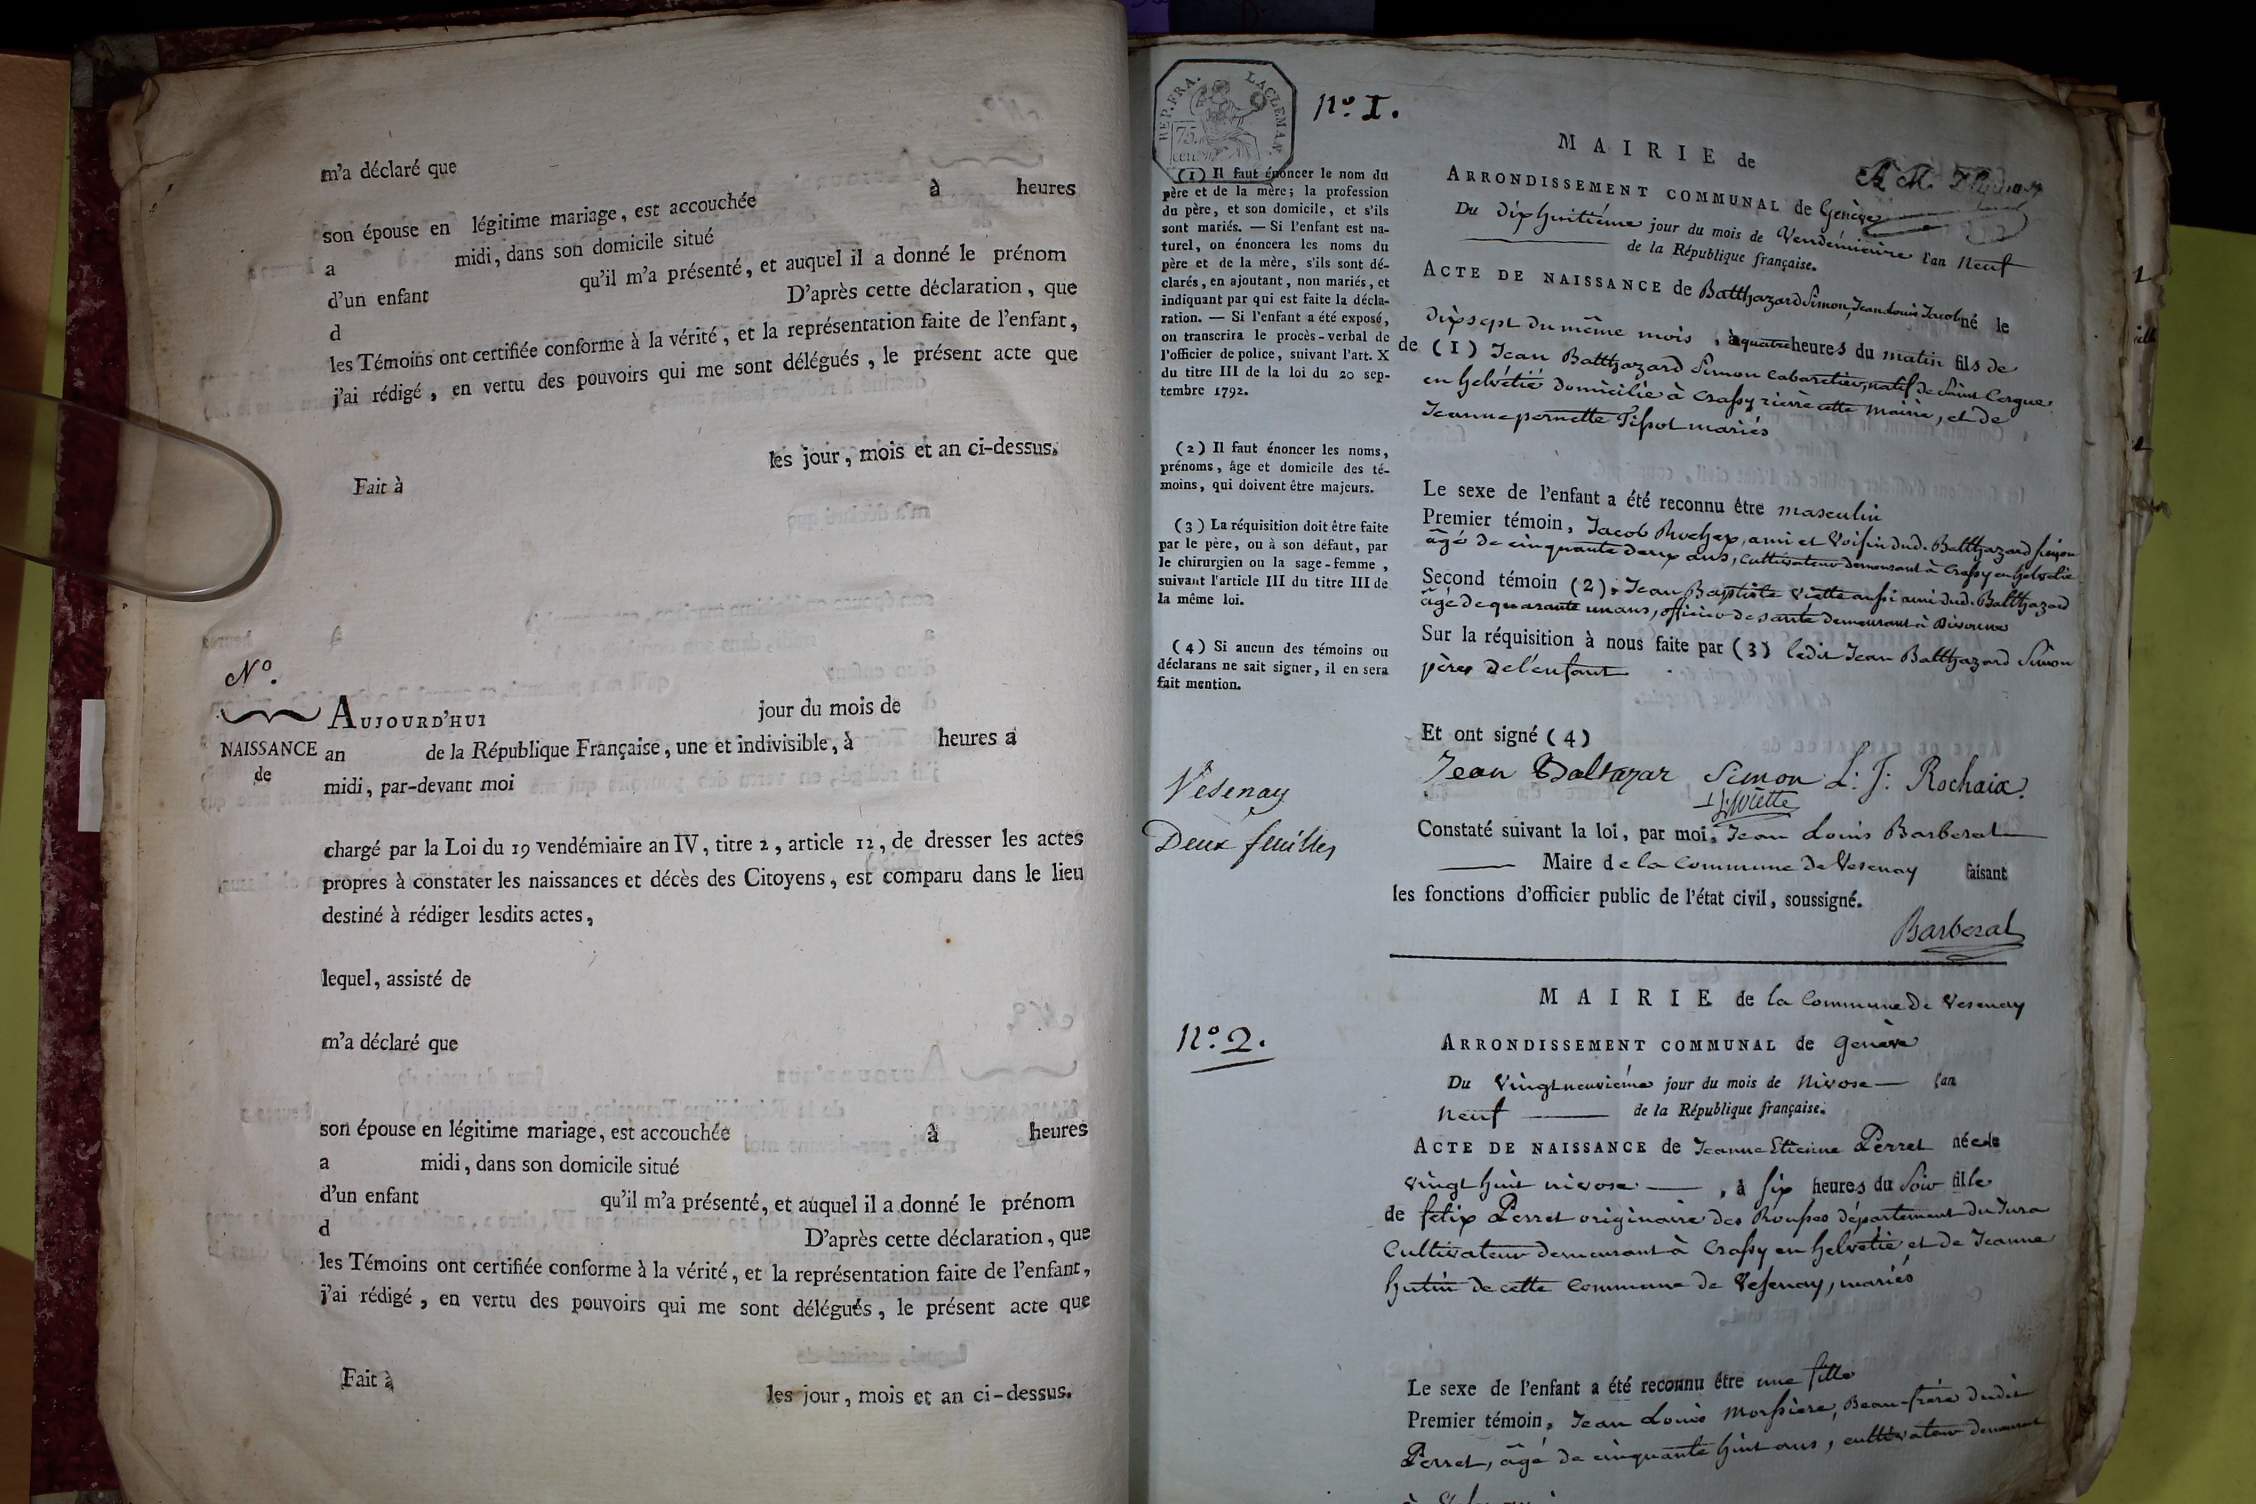 m'a déclaré que
son épouse en légitime mariage, est accouchée à heures
a midi, dans son domicile situé
d'un enfant qu'il m'a présenté, et auquel il a donné le prénom
d D'après cette déclaration, que
les Témoins ont certifiée conforme à la vérité, et la représentation faite de l'enfant,
j'ai rédigé, en vertu des pouvoirs qui me sont délégués, le présent acte que
les jour, mois et an ci-dessus.
Fait à
N.º
AUJOURD'HUI jour du mois de
NAISSANCE
de
an de la République Française, une et indivisible, à heures a
midi, par-devant moi
chargé par la Loi du 19 vendémiaire an IV, titre 2, article 12, de dresser les actes
propres à constater les naissances et décès des Citoyens, est comparu dans le lieu
destiné à rédiger lesdits actes,
lequel, assisté de
m'a déclaré que
son épouse en légitime mariage, est accouchée à heures
a midi, dans son domicile situé
d'un enfant qu'il m'a présenté, et auquel il a donné le prénom
d D'après cette déclaration, que
les Témoins ont certifiée conforme à la vérité, et la représentation faite de l'enfant,
j'ai rédigé, en vertu des pouvoirs qui me sont délégués, le présent acte que
Fait à les jour, mois et an ci-dessus.
REP. FRA.
75
cen
nº. I.
(1) Il faut énoncer le nom du
père et de la mère; la profession
du père, et son domicile, et s'ils
sont mariés. — Si l'enfant est na-
turel, on énoncera les noms du
père et de la mère, s'ils sont dé-
clarés, en ajoutant, non mariés, et
indiquant par qui est faite la décla-
ration. — Si l'enfant a été exposé,
on transcrira le procès-verbal de
l'officier de police, suivant l'art. X
du titre III de la loi du 20 sep-
tembre 1792.
(2) Il faut énoncer les noms,
prénoms, âge et domicile des té-
moins, qui doivent être majeurs.
(3) La réquisition doit être faite
par le père, ou à son défaut, par
le chirurgien ou la sage-femme,
suivant l'article III du titre III de
la même loi.
(4) Si aucun des témoins ou
déclarans ne sait signer, il en sera
fait mention.
Vesenay
Deux feuilles
nº. 2.
MAIRIE de
ARRONDISSEMENT COMMUNAL de Genève
Du dix huitiéme jour du mois de Vendémiaire l'an Neuf
de la République française.
ACTE DE NAISSANCE de Balthazard Simon, Jean Louis Jacob né le
dix sept du même mois, à quatre heures du matin fils de
de (1) Jean Balthazard Simon cabaretier, natif de Saint Cergue
en helvétie domicilié à Crassy rière cette Mairie, et de
Jeanne pernette Tissot mariés
Le sexe de l'enfant a été reconnu être masculin
Premier témoin, Jacob Rochex, ami et Voisin dud. Balthazard Simon
âgé de cinquante deux ans, Cultivateur demeurant à Crassy en helvétie
Second témoin (2), Jean Baptiste Viette aussi ami dud. Balthazard
âgé de quarante un ans, officier de santé demeurant à Divonne
Sur la réquisition à nous faite par (3) ledit Jean Balthazard Simon
père de l'enfant
Et ont signé (4)
Jean Baltazar Simon L: J: Rochaix.
Viette
Constaté suivant la loi, par moi, Jean Louis Barberat
Maire de la Commune de Vesenay faisant
les fonctions d'officier public de l'état civil, soussigné.
Barberat
MAIRIE de la Commune de Vesenay
ARRONDISSEMENT COMMUNAL de Genève
Du Vingt neuvième jour du mois de Nivose l'an
Neuf de la République française.
ACTE DE NAISSANCE de Jeanne Etienne Perret née le
vingt huit nivose, à six heures du Soir fille
de felix Perret originaire des Rousses département du Jura
Cultivateur demeurant à Crassy en helvétie et de Jeanne
hutin de cette Commune de Vesenay, mariés
Le sexe de l'enfant a été reconnu être une fille
Premier témoin, Jean Louis Morsiere, Beau-frère dudit
Perret, âgé de cinquante huit ans, cultivateur demeurant